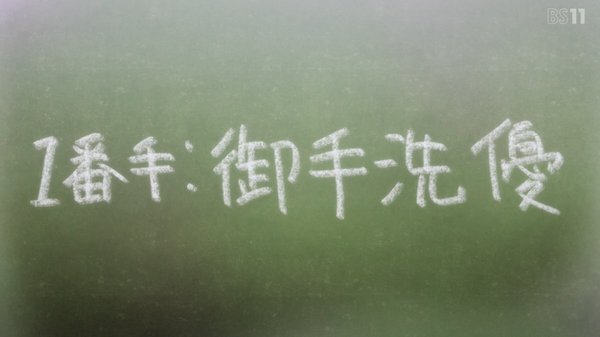 BS11
1番手:御手洗優